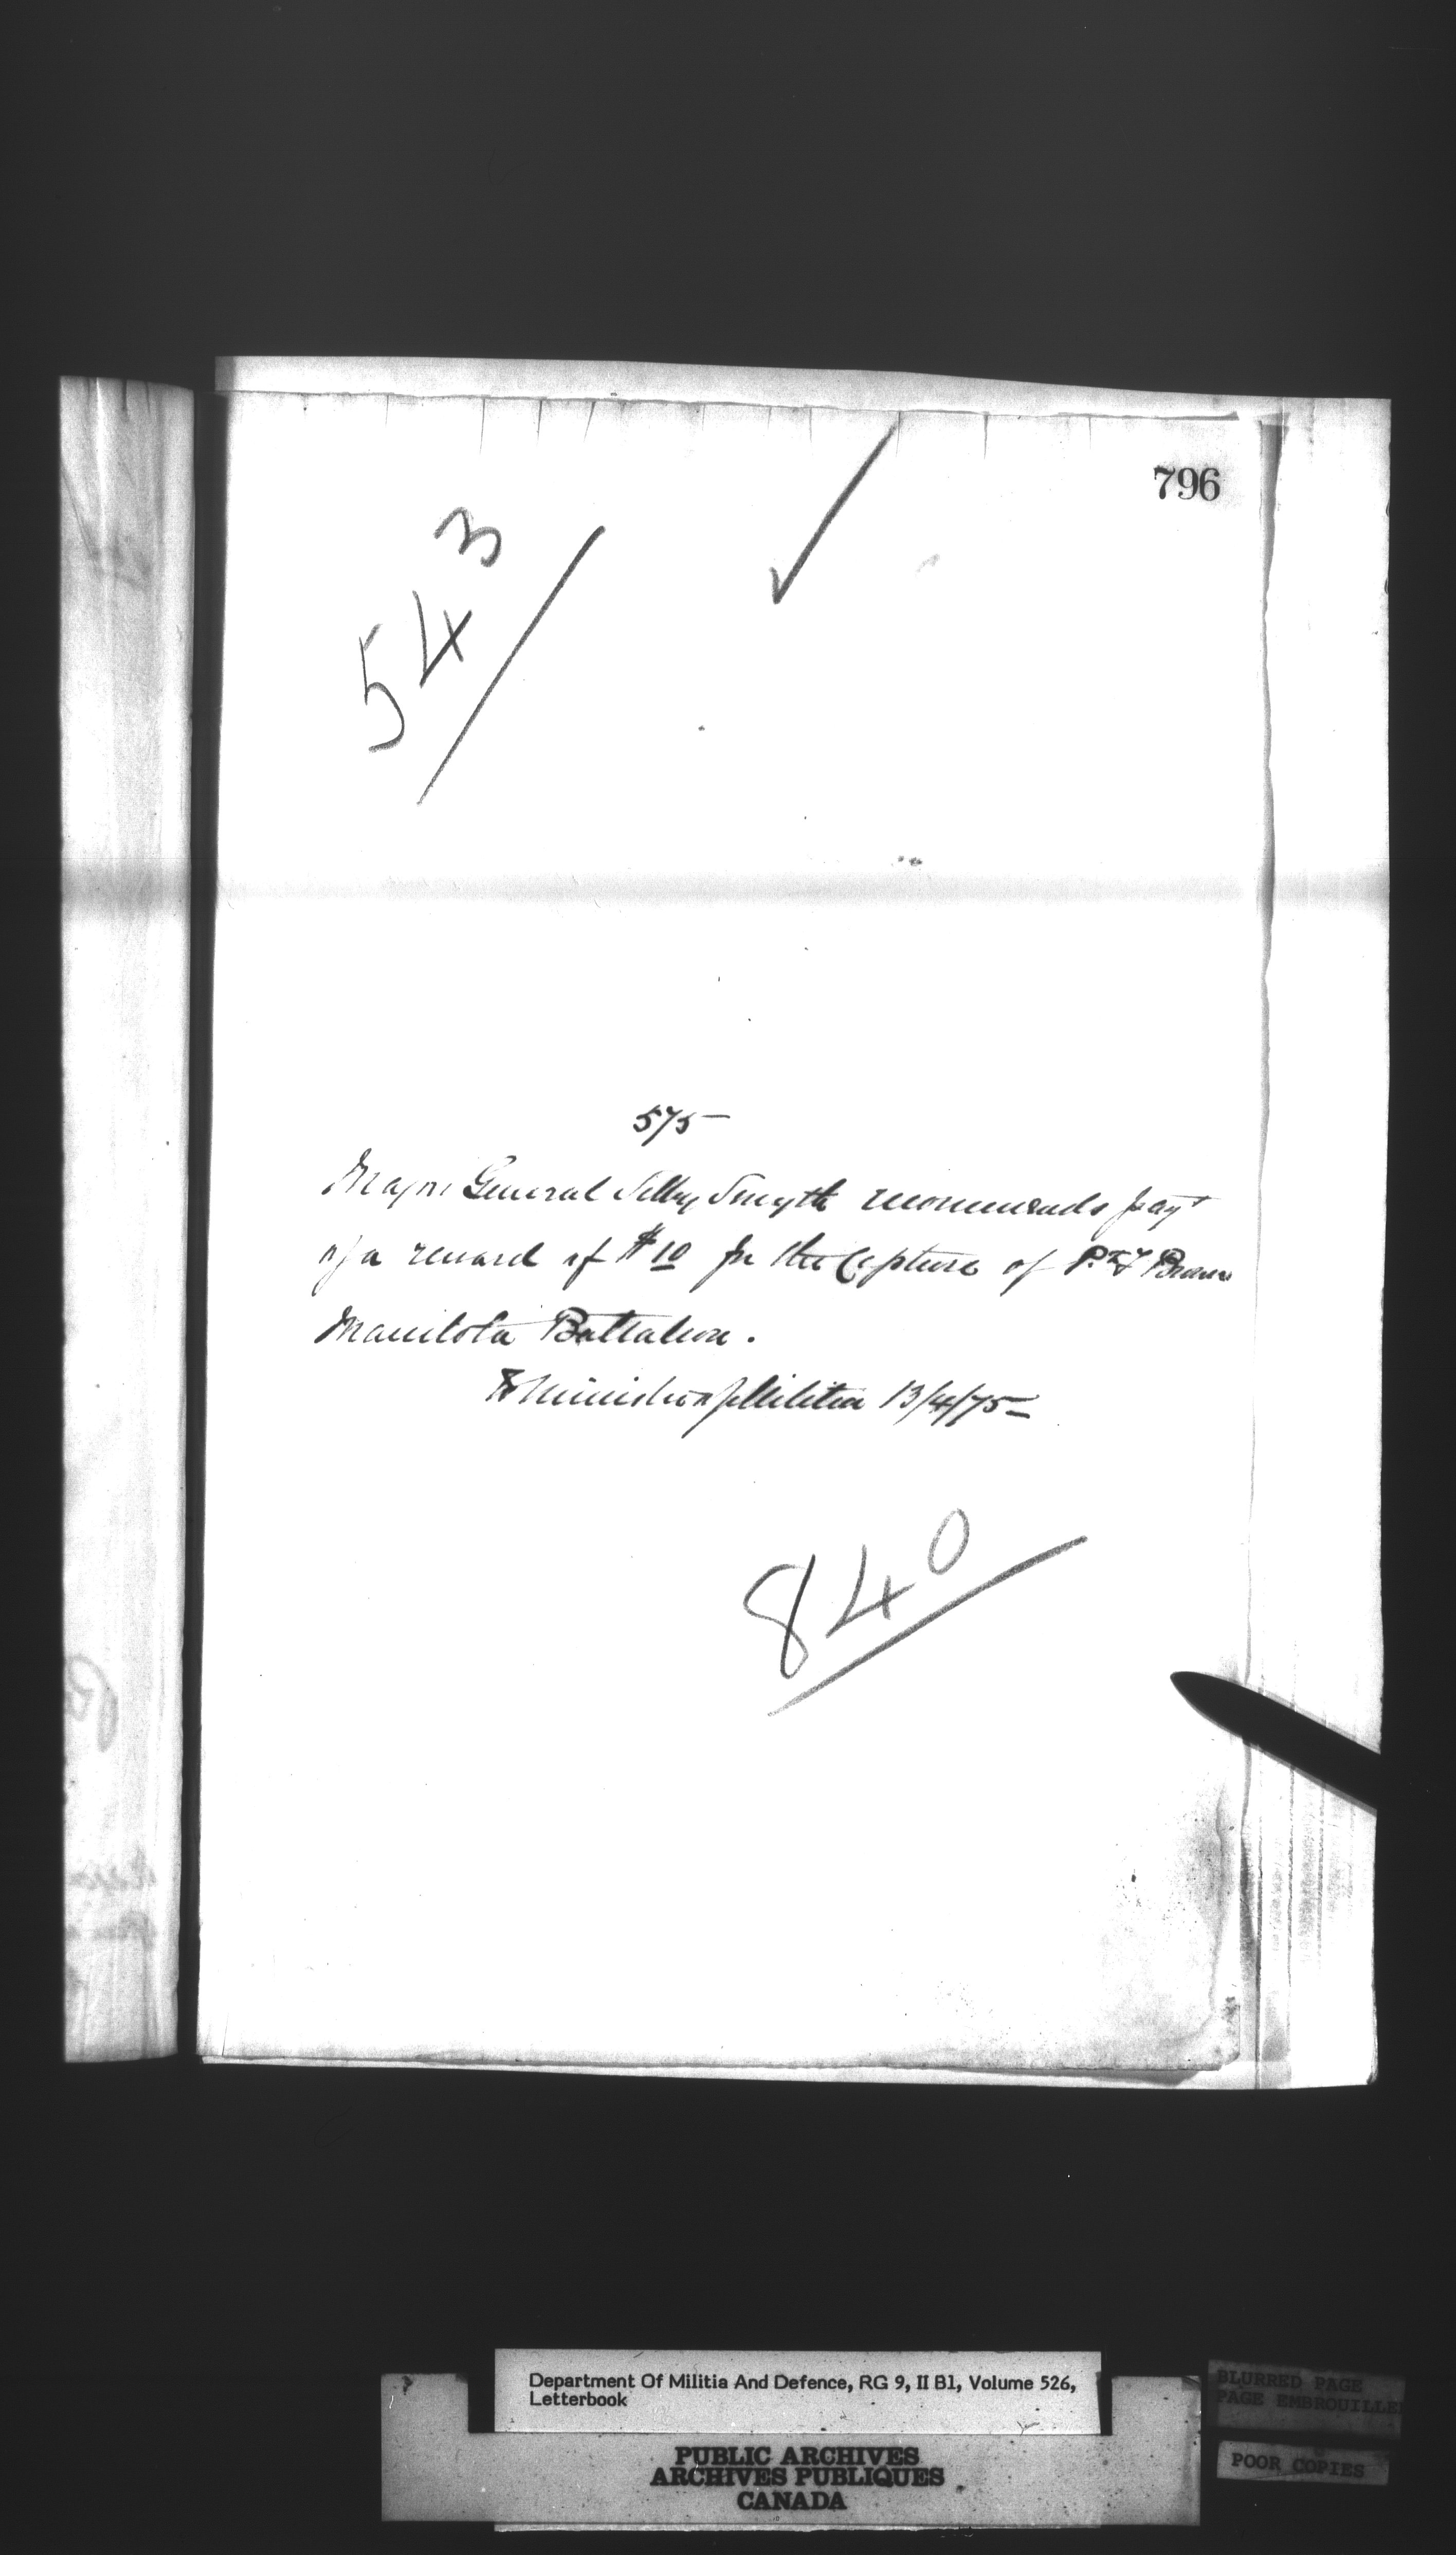 796
543
575
Major General Selby Smyth recommends payt
of a reward of $10 for the Capture of Pte Brown
Manitoba Battalion.
To Minister of Militia 13/4/75
840
Department Of Militia And Defence, RG 9, II B1, Volume 526,
Letterbook
PUBLIC ARCHIVES
ARCHIVES PUBLIQUES
CANADA
BLURRED PAGE
PAGE EMBROUILLE
POOR COPIES